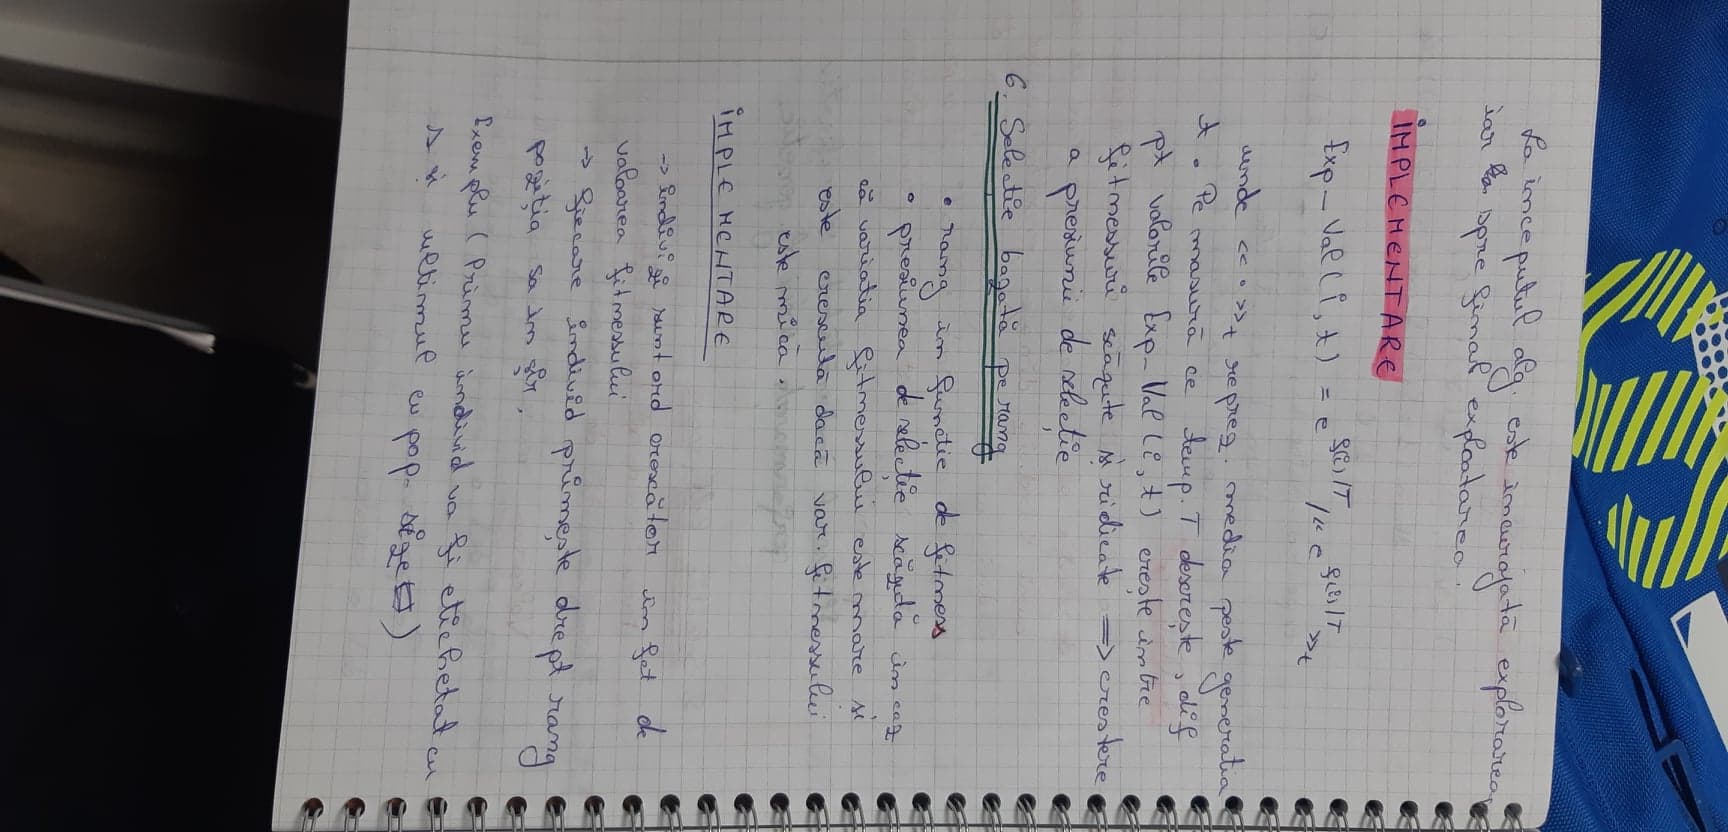 La inceputul alg. este incurajată explorarea,
iar spre final exploatarea.
IMPLEMENTARE
Exp_Val(i, t) = e^f(i)/T / << e^f(i)/T >>t
unde << • >>t reprez. media peste generatia
t. Pe masură ce temp. T descrește, dif
pt valorile Exp_Val(i, t) crește intre
fitnessuri scăzute și ridicate => crestere
a presiunii de selecție
6. Selectie bazată pe rang
• rang in funcție de fitness
• presiunea de selecție scăzută in caz
că variatia fitnessului este mare si
este crescută dacă var. fitnessului
este mică.
IMPLEMENTARE
-> indivizi sunt ord crescător in fct de
valoarea fitnessului
-> fiecare individ primește drept rang
poziția sa in șir.
Exemplu (Primu individ va fi etichetat cu
și ultimul cu pop_size)